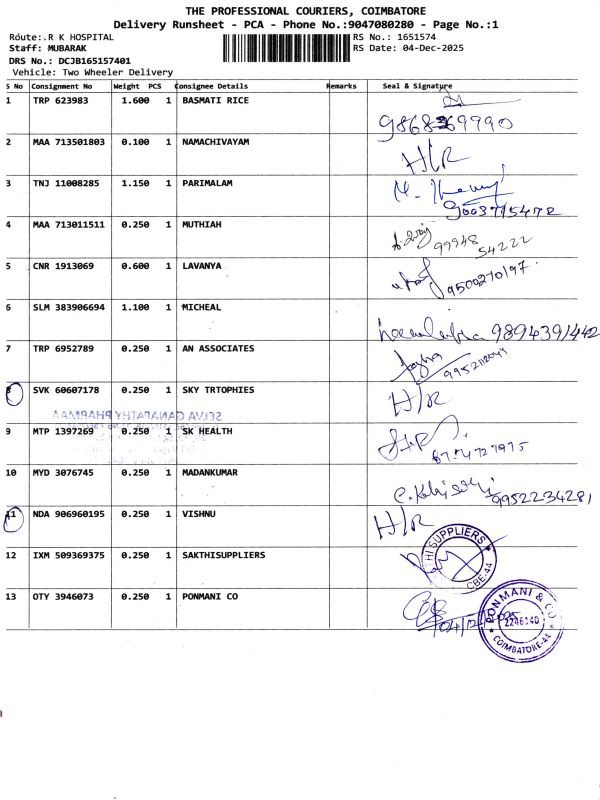 THE PROFESSIONAL COURIERS, COIMBATORE
Delivery Runsheet - PCA - Phone No.:9047080280 - Page No.:1
Route:.R K HOSPITAL RS No.: 1651574
Staff: MUBARAK RS Date: 04-Dec-2025
DRS No.: DCJB165157401
Vehicle: Two Wheeler Delivery
S No Consignment No Weight PCS Consignee Details Remarks Seal & Signature
1 TRP 623983 1.600 1 BASMATI RICE
9868369990
2 MAA 713501803 0.100 1 NAMACHIVAYAM H/R
3 TNJ 11008285 1.150 1 PARIMALAM
9003715472
4 MAA 713011511 0.250 1 MUTHIAH
99948 54222
5 CNR 1913069 0.600 1 LAVANYA
9500270197
6 SLM 383906694 1.100 1 MICHEAL
9894391442
7 TRP 6952789 0.250 1 AN ASSOCIATES
9952112044
8 SVK 60607178 0.250 1 SKY TRTOPHIES H/R
SELVA GANAPATHY PHARMAA
9 MTP 1397269 0.250 1 SK HEALTH
8754727975
10 MYD 3076745 0.250 1 MADANKUMAR
9952234281
11 NDA 906960195 0.250 1 VISHNU H/R
12 IXM 509369375 0.250 1 SAKTHISUPPLIERS
THI SUPPLIERS CBE-44
13 OTY 3946073 0.250 1 PONMANI CO
PONMANI & CO
2246140
COIMBATORE-44